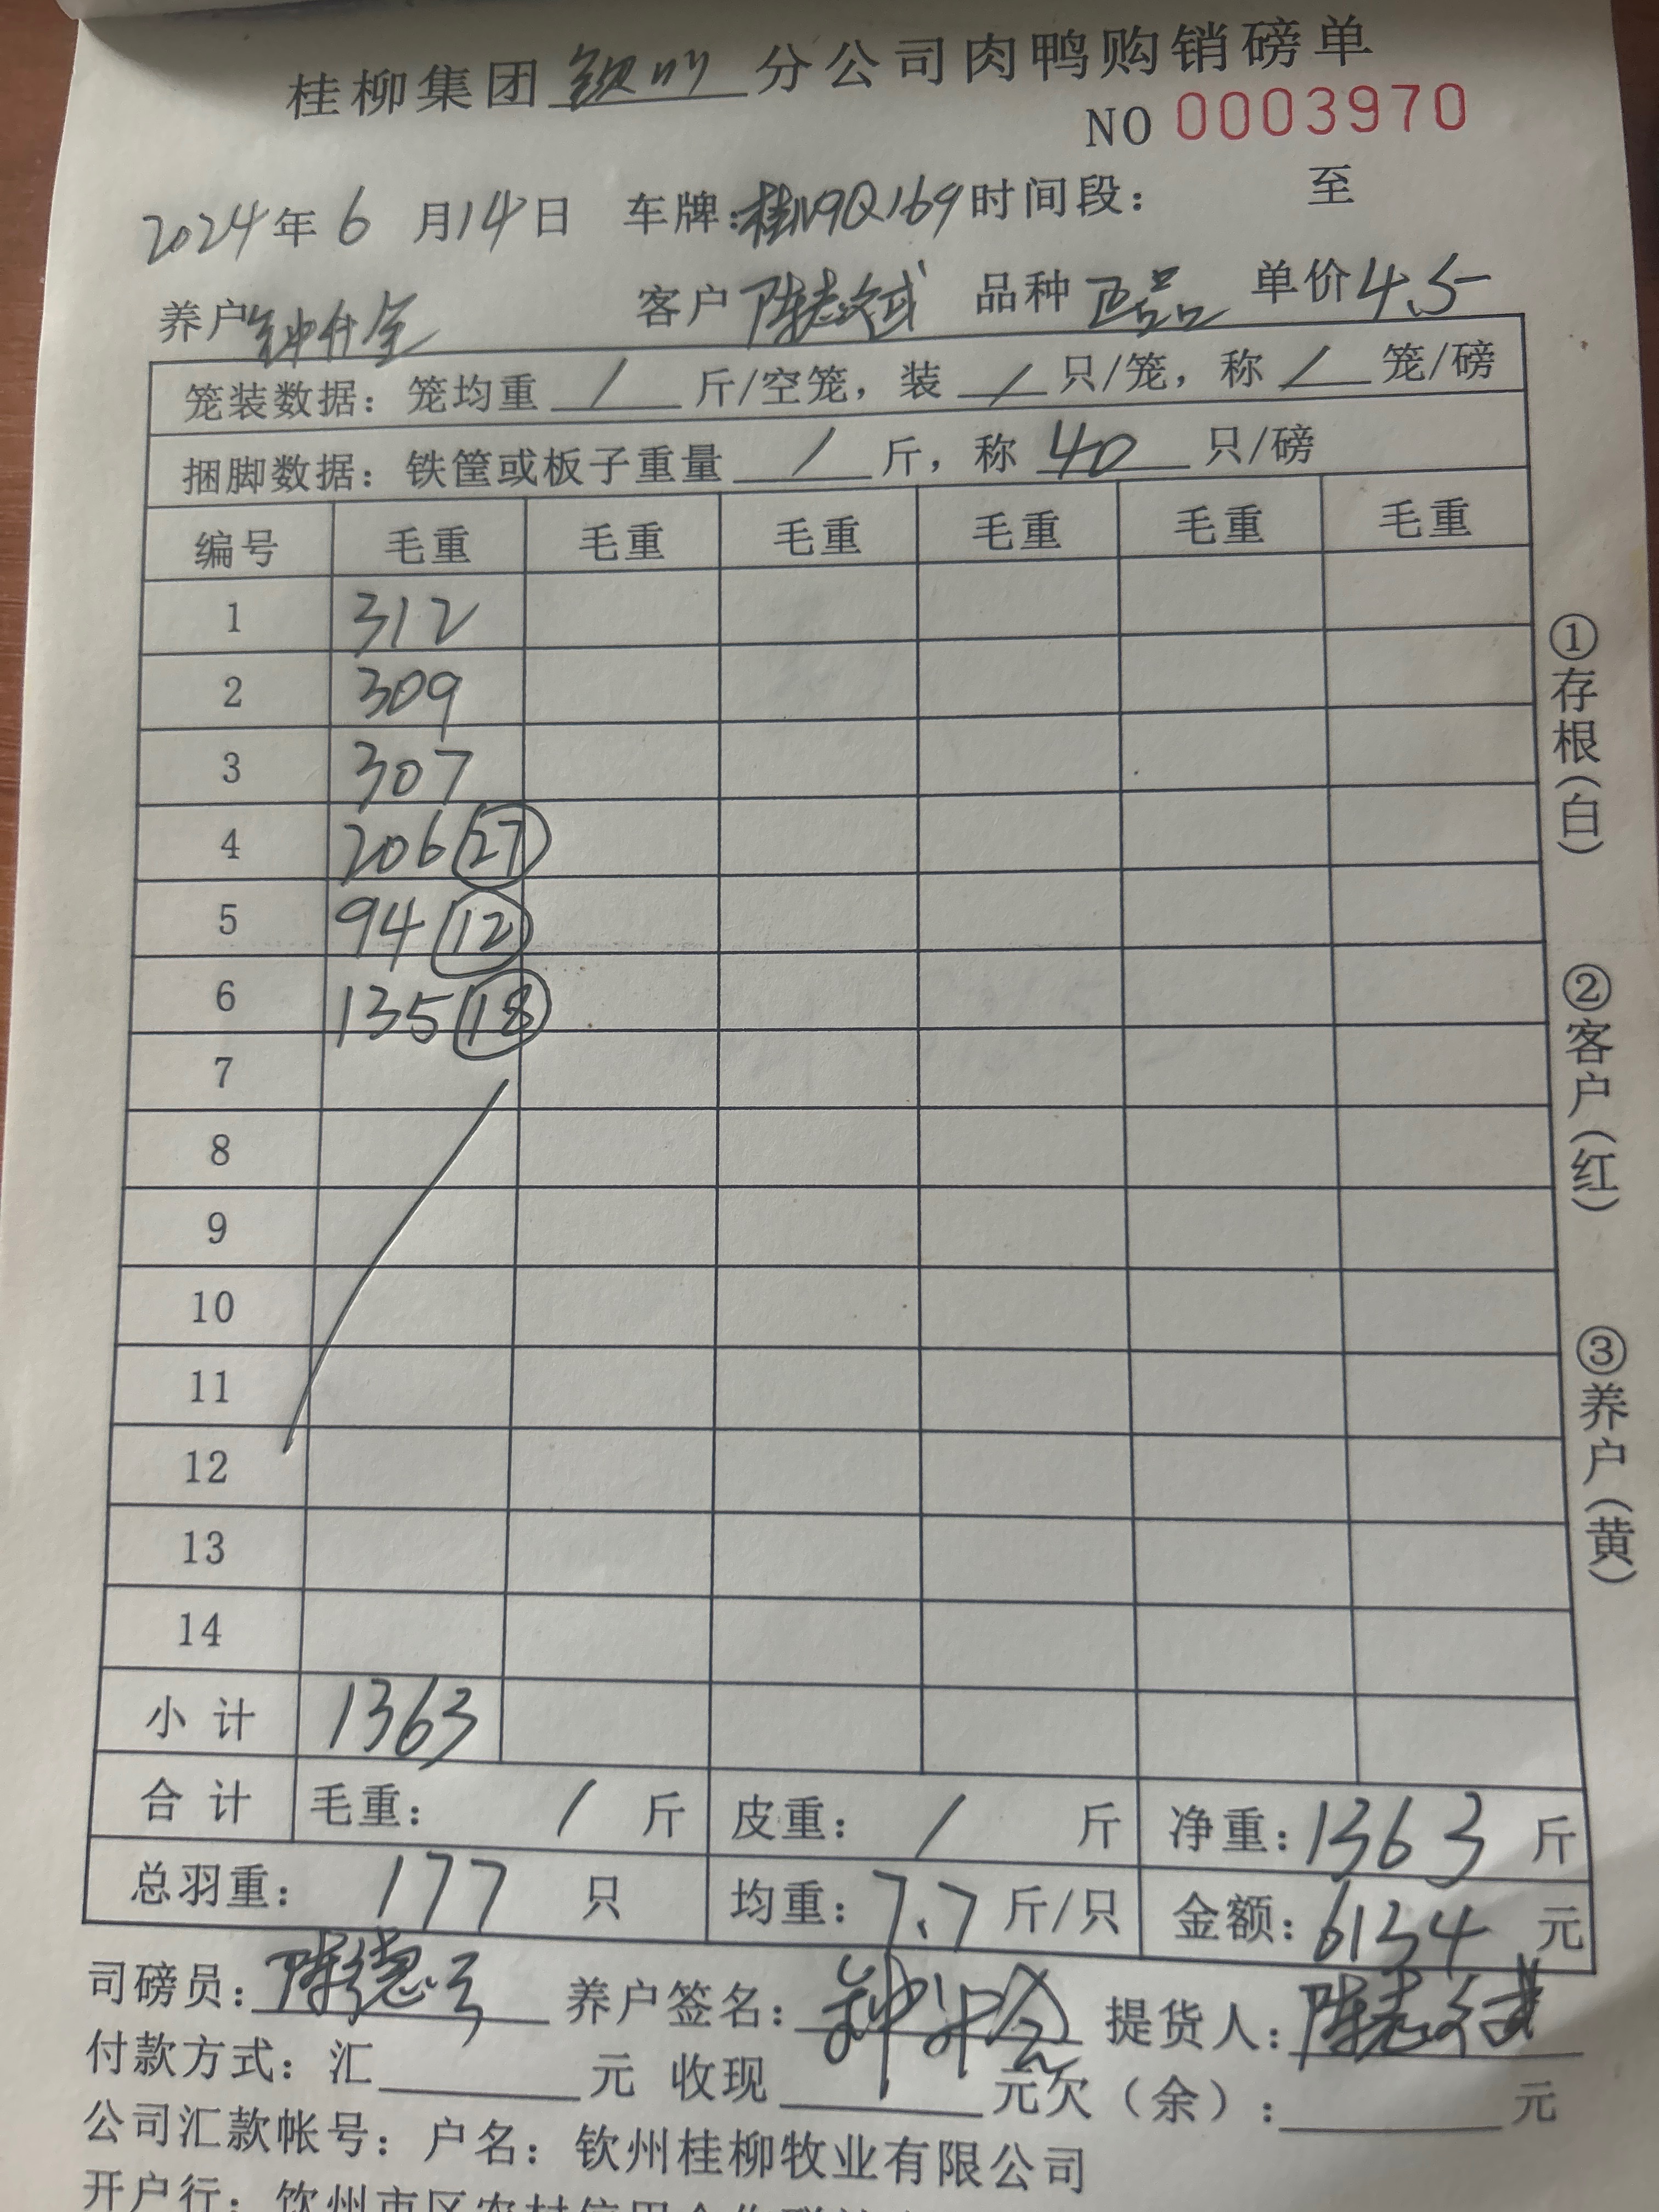 桂柳集团钦州分公司肉鸭购销磅单
NO 0003970
2024年6月14日 车牌:桂N9Q169时间段: 至
养户钟什全 客户陈志斌 品种正品 单价4.5
笼装数据:笼均重 / 斤/空笼,装 / 只/笼,称 / 笼/磅
捆脚数据:铁筐或板子重量 / 斤,称 40 只/磅
编号 毛重 毛重 毛重 毛重 毛重 毛重
1 312
2 309
3 307
4 206 27
5 94 12
6 135 18
7
8
9
10
11
12
13
14
小计 1363
合计 毛重: / 斤 皮重: / 斤 净重:1363 斤
总羽重: 177 只 均重:7.7斤/只 金额:6134 元
司磅员:陈德 养户签名:钟什全 提货人:陈志斌
付款方式:汇 元 收现 元欠(余): 元
公司汇款帐号:户名:钦州桂柳牧业有限公司
开户行:钦州市区农村信用合作联社
①存根(白)
②客户(红)
③养户(黄)